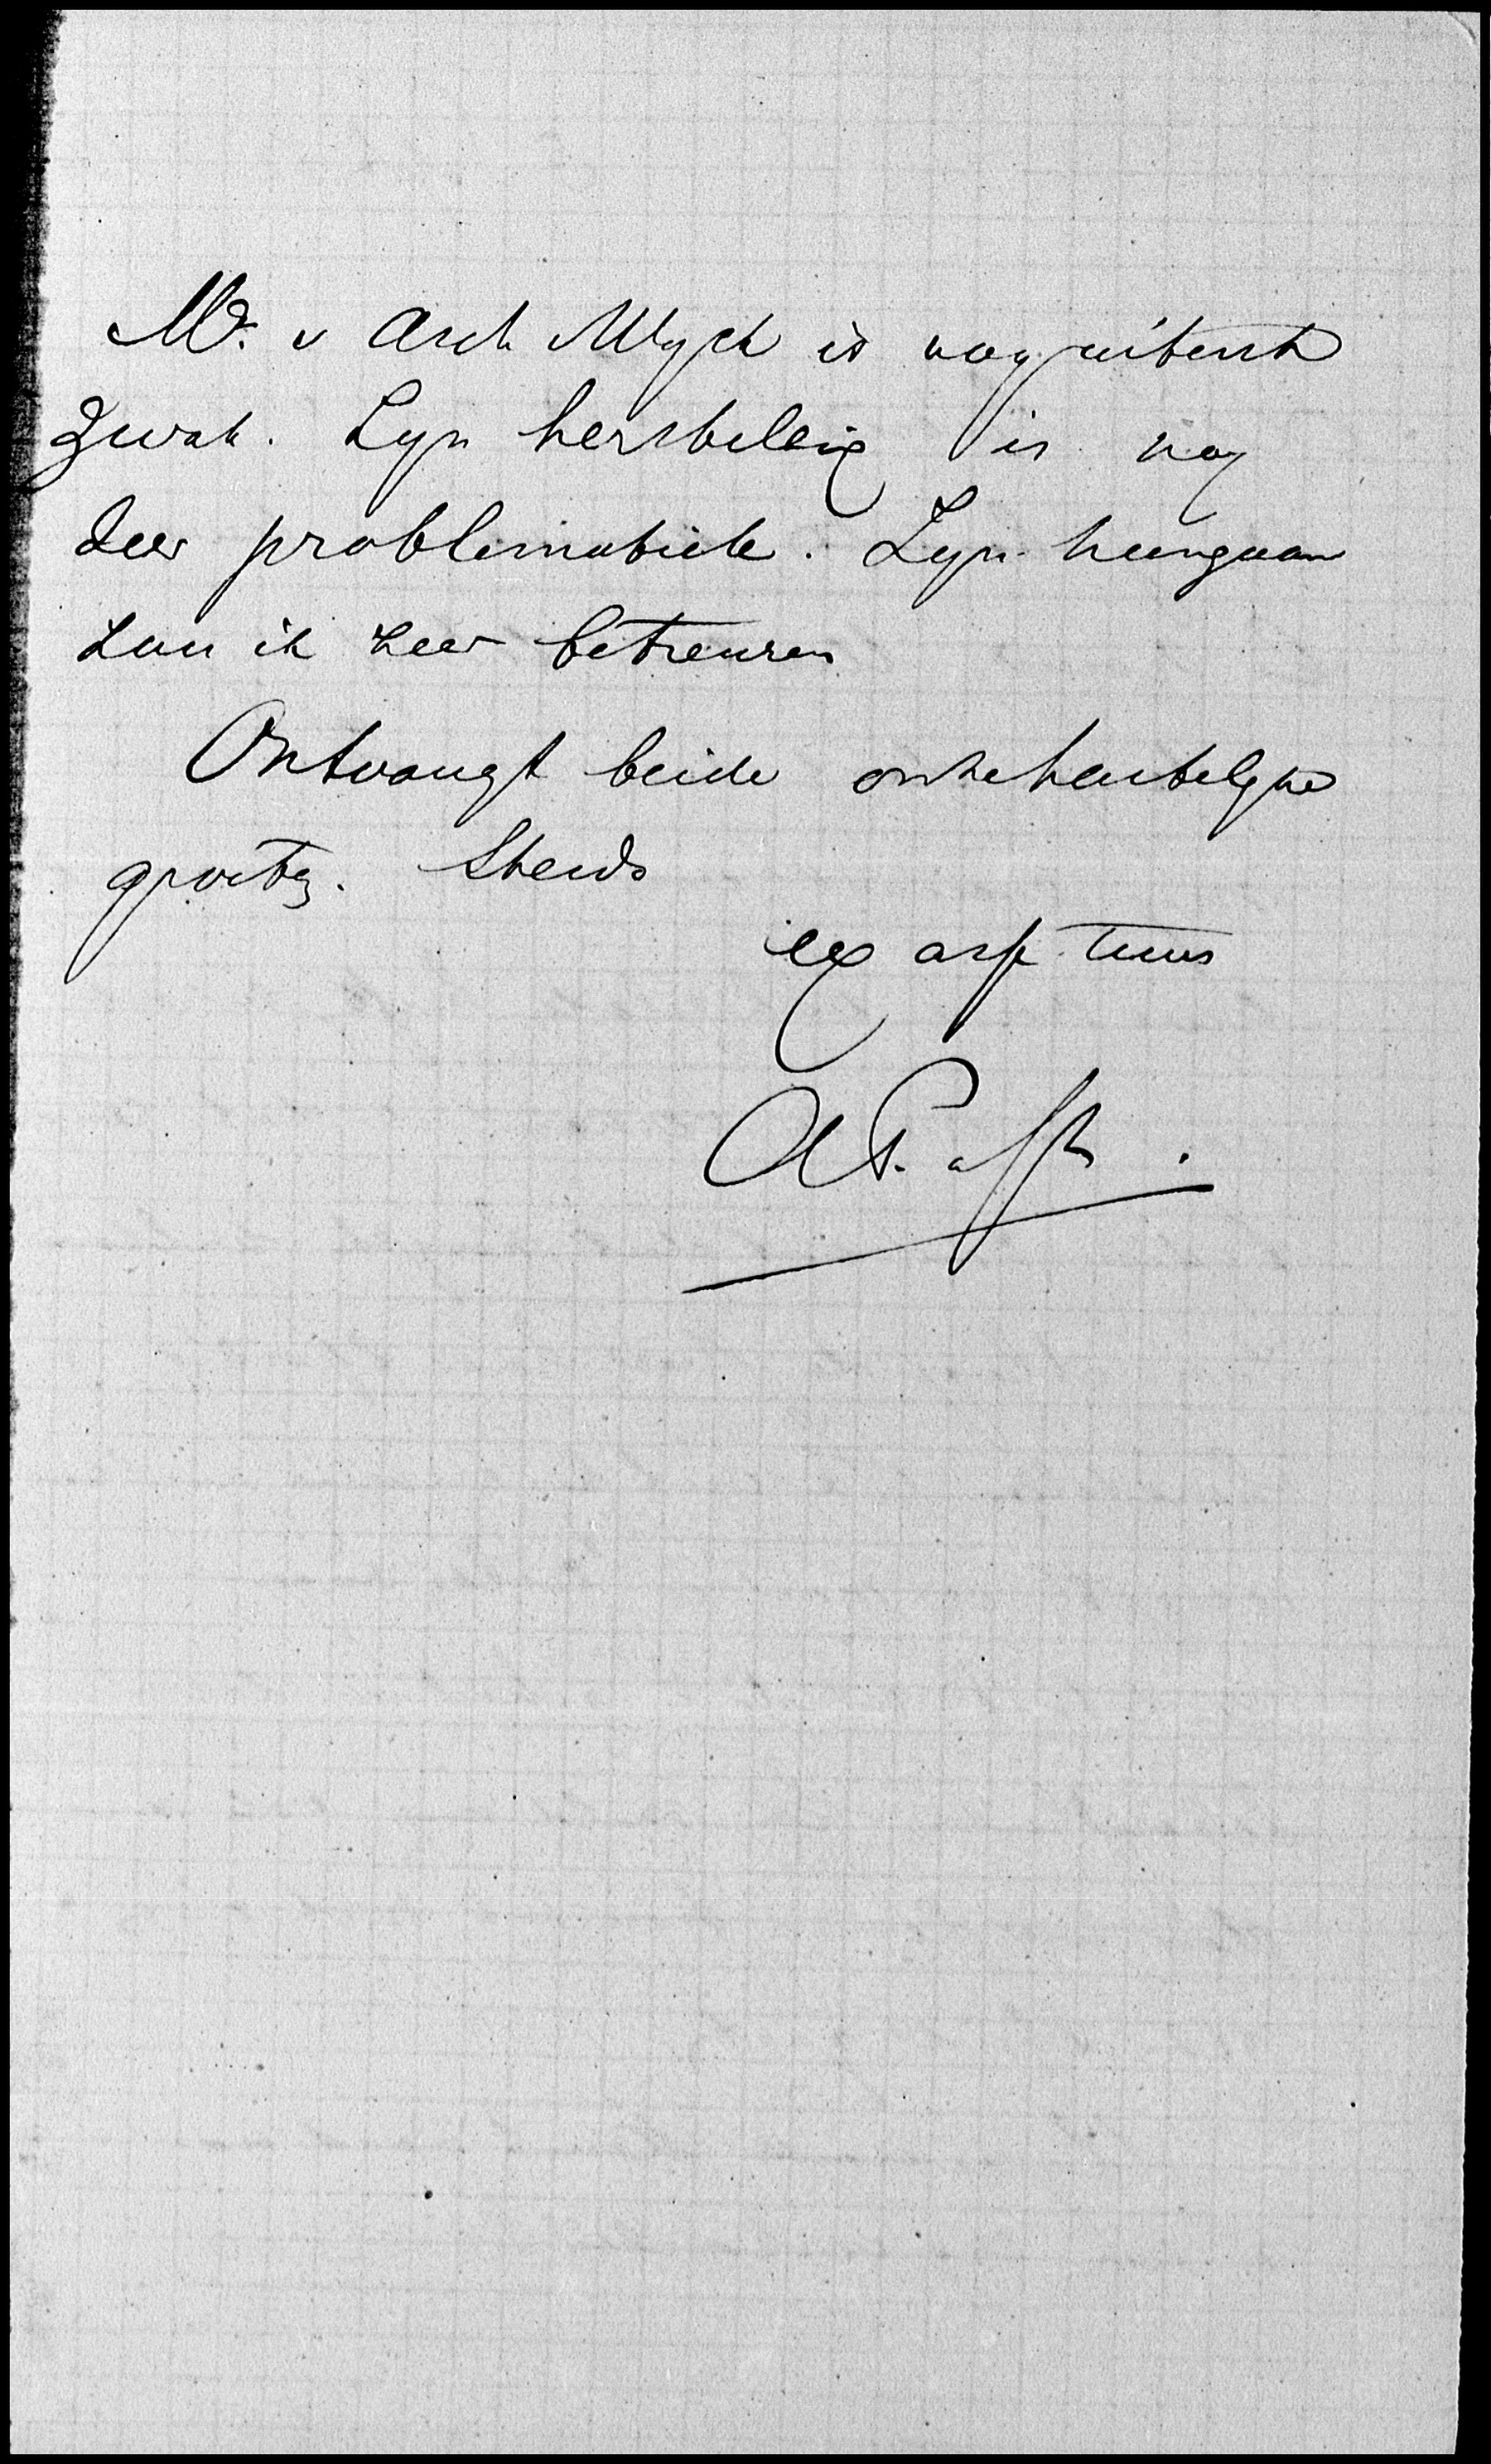 Mr. v Asch v Wijck is nog uiterst
zwak. Zijn herstelling is nog
zeer problematiek. Zijn heengaan
zou ik zeer betreuren
Ontvangt beide onze hartelijke
groeten. Steeds
ex asse tuus